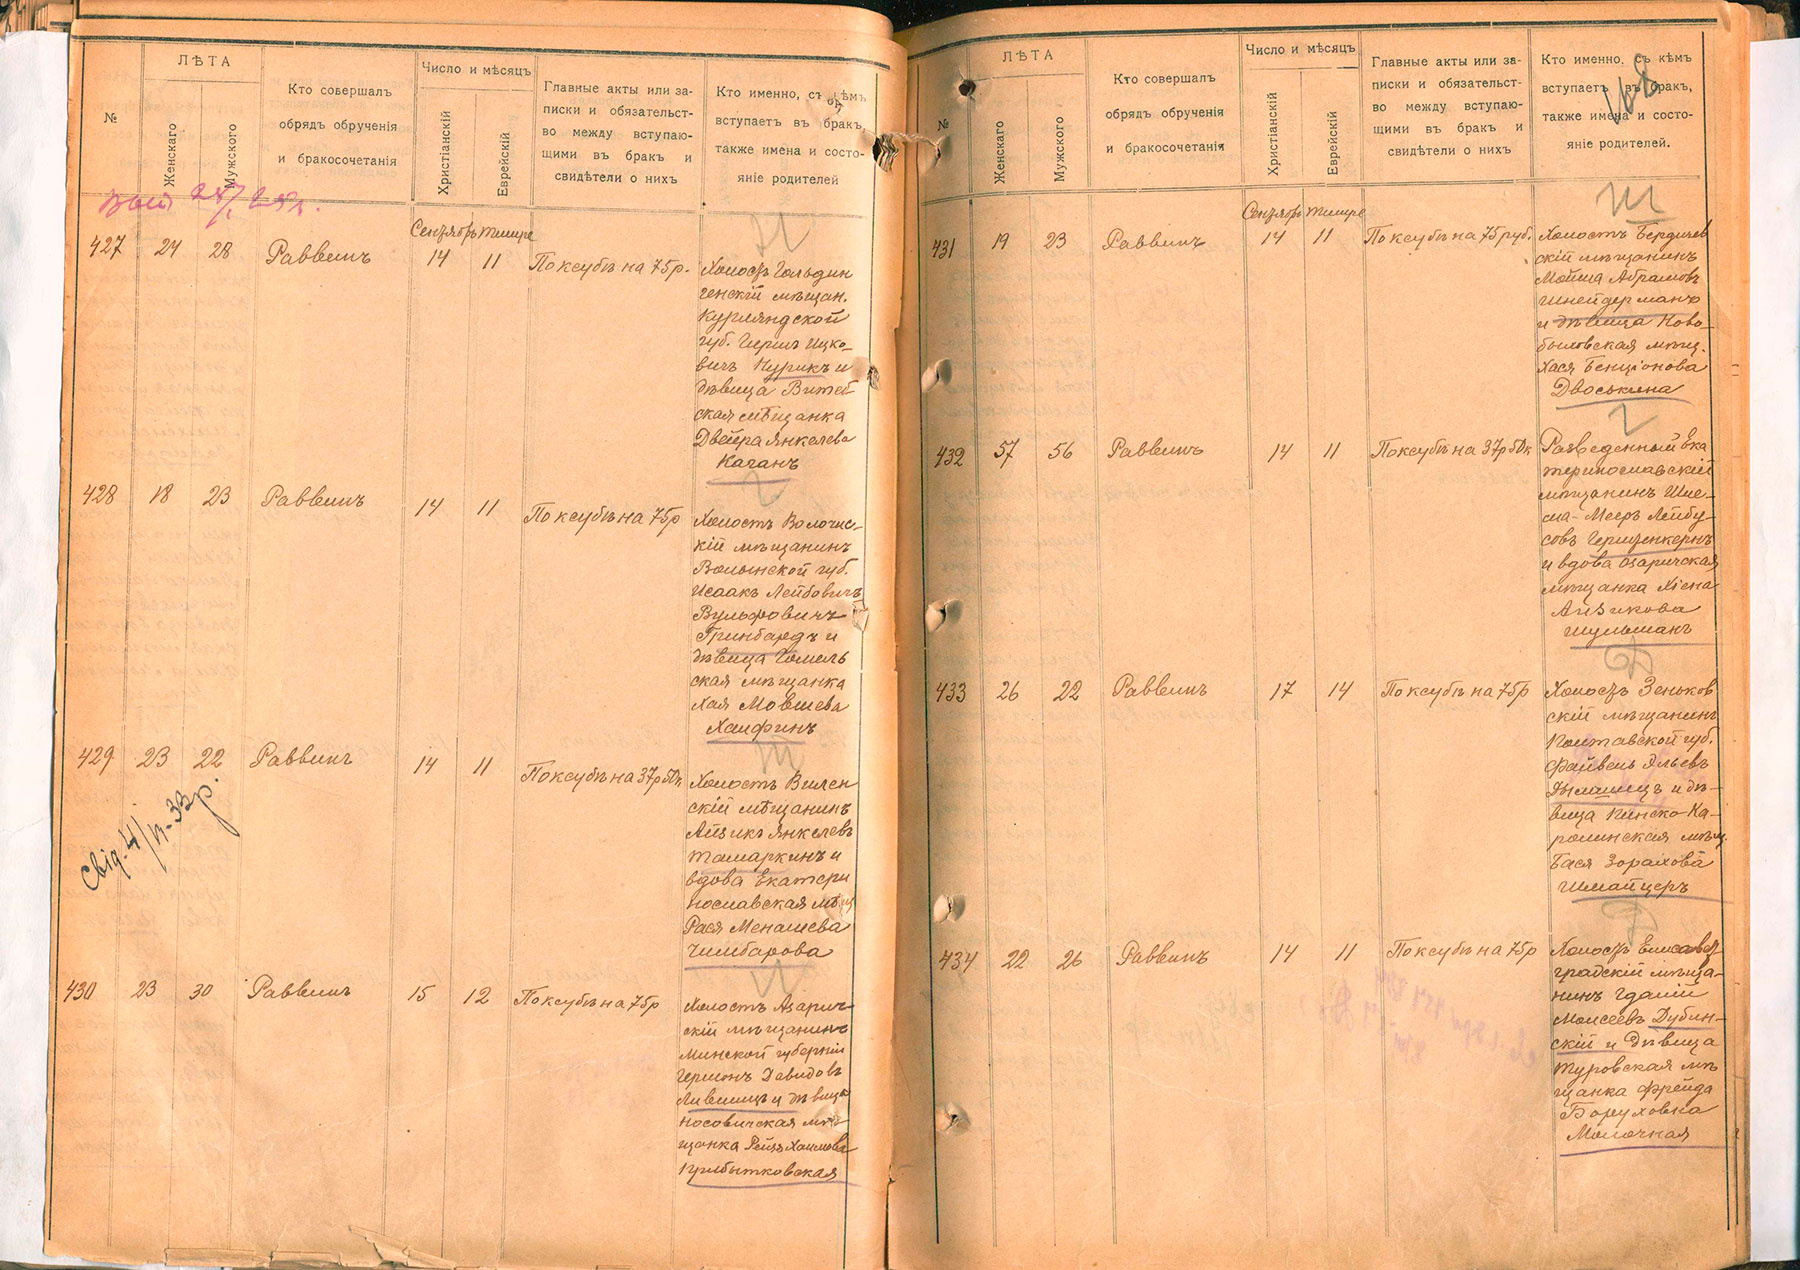 №
ЛѢТА
Женскаго
Мужского
Кто совершалъ
обрядъ обрученія
и бракосочетанія
Число и мѣсяцъ
Христіанскій
Еврейскій
Главные акты или за-
писки и обязательст-
во между вступаю-
щими въ бракъ и
свидѣтели о нихъ
Кто именно, съ кѣмъ
вступаетъ въ бракъ,
также имена и состо-
яніе родителей
Сентябрь Тишре
427 24 28 Раввинъ 14 11 По ксубѣ на 75 р.
Холостъ Гольдин
генскій мѣщан.
Курляндской
губ. Гирш Ицко-
вичъ Курикъ и
дѣвица Витеб
ская мѣщанка
Двейра Янкелева
Каганъ
428 18 23 Раввинъ 14 11 По ксубѣ на 75 р
Холостъ Волочис-
кій мѣщанинъ
Волынской губ.
Исаакъ Лейбовичъ
Вульфовичъ
Гринбардъ и
дѣвица Гомель
ская мѣщанка
Хая Мовшева
Хаифинъ
429 23 22 Раввинъ 14 11 По ксубѣ на 37 р 50 к
Холостъ Вилен
скій мѣщанинъ
Айзикъ Янкелевъ
Тамаркинъ и
вдова Екатери
нославская мѣщ
Рася Менашева
Чимбарова
430 23 30 Раввинъ 15 12 По ксубѣ на 75 р
Холостъ Азарич-
скій мѣщанинъ
Минской губерніи
Гершонъ Давидовъ
Лившицъ и дѣвица
Носовичская мѣ-
щанка Рейзя Хаимова
Прибытковская
№
ЛѢТА
Женскаго
Мужского
Кто совершалъ
обрядъ обрученія
и бракосочетанія
Число и мѣсяцъ
Христіанскій
Еврейскій
Главные акты или за-
писки и обязательст-
во между вступаю-
щими въ бракъ и
свидѣтели о нихъ
Кто именно, съ кѣмъ
вступаетъ въ бракъ,
также имена и состо-
яніе родителей.
168
Сентябрь Тишре
431 19 23 Раввинъ 14 11 По ксубѣ на 75 руб.
Холостъ Бердичев
скій мѣщанинъ
Мойша Абрамовъ
Шнейдерманъ
и дѣвица Ново-
быховская мѣщ.
Хася Бенціонова
Двоськина
432 57 56 Раввинъ 14 11 По ксубѣ на 37 р 50 к
Разведенный Ека
теринославскій
мѣщанинъ Шле-
ма-Мееръ Лейбу-
совъ Гершенкернъ
и вдова Озаричская
мѣщанка Хіена
Айзикова
Шульманъ
433 26 22 Раввинъ 17 14 По ксубѣ на 75 р
Холостъ Зеньков
скій мѣщанинъ
Полтавской губ.
Файвель Яльевъ
Дымшицъ и дѣ-
вица Пинско-Ка-
ролинская мѣщ.
Бася Зорахова
Шмайцеръ
434 22 26 Раввинъ 14 11 По ксубѣ на 75 р
Холостъ Елисавет-
градскій мѣща-
нинъ Гдалій
Моисеевъ Дубин-
скій и дѣвица
Туровская мѣ
щанка Фрейда
Боруховна
Молочная